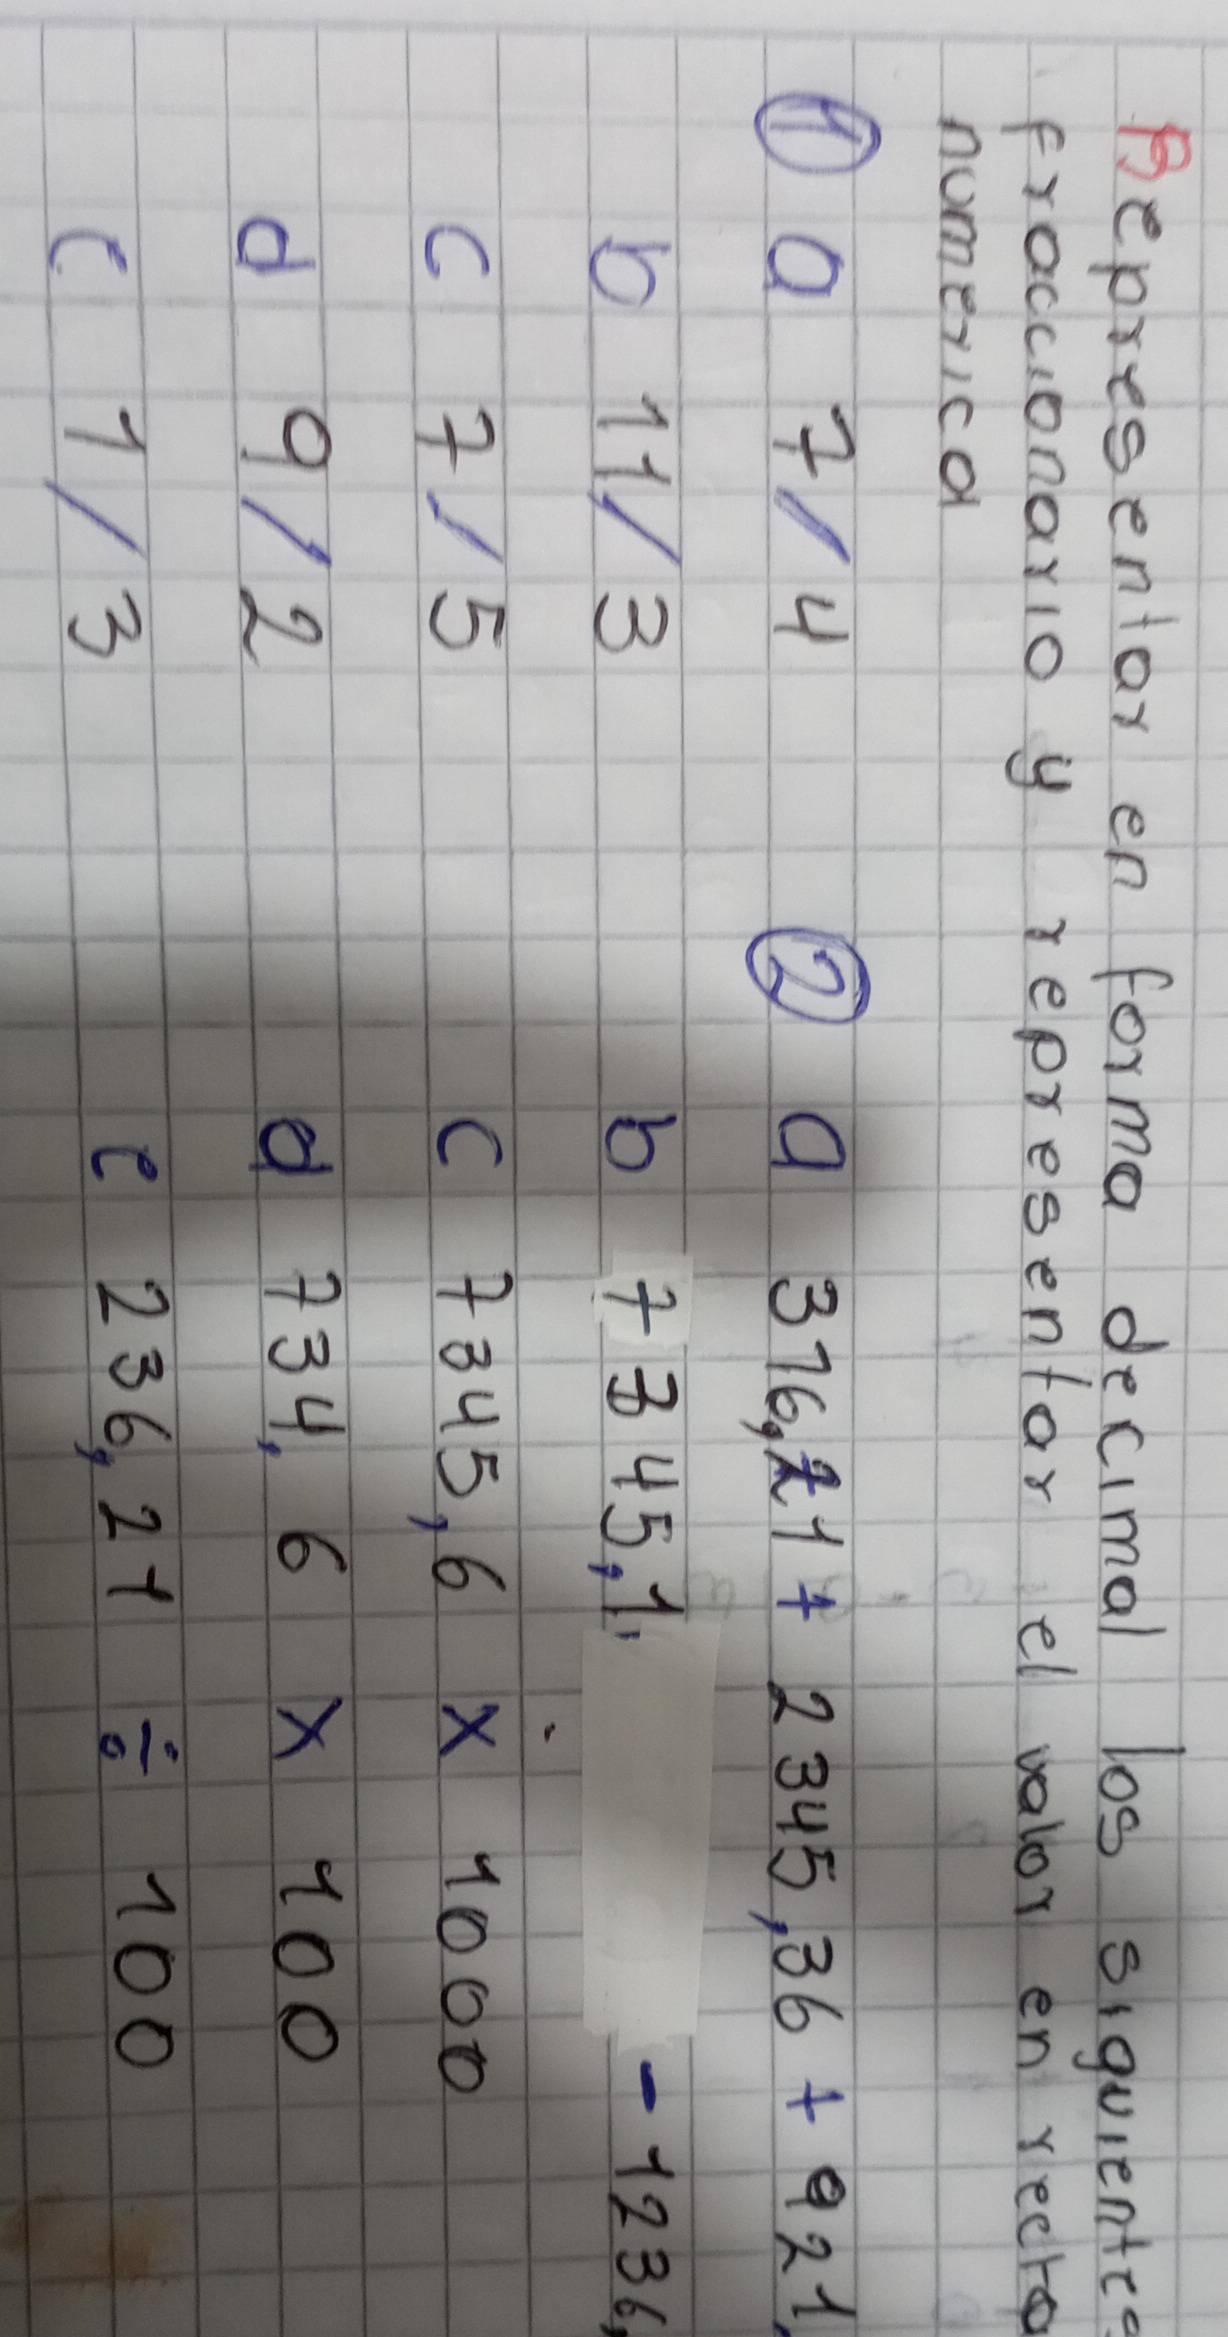 Representar en forma decimal los siguientes
fraccionario y representar el valor en recta
numerica
1 a 7/4 2 a 376,21 + 2345,36 + 921,
b 11/3 b 7345,1, - 1236,
c 7/5 c 7345,6 x 1000
d 9/2 d 734,6 x 100
c 1/3 e 236,21 ÷ 100